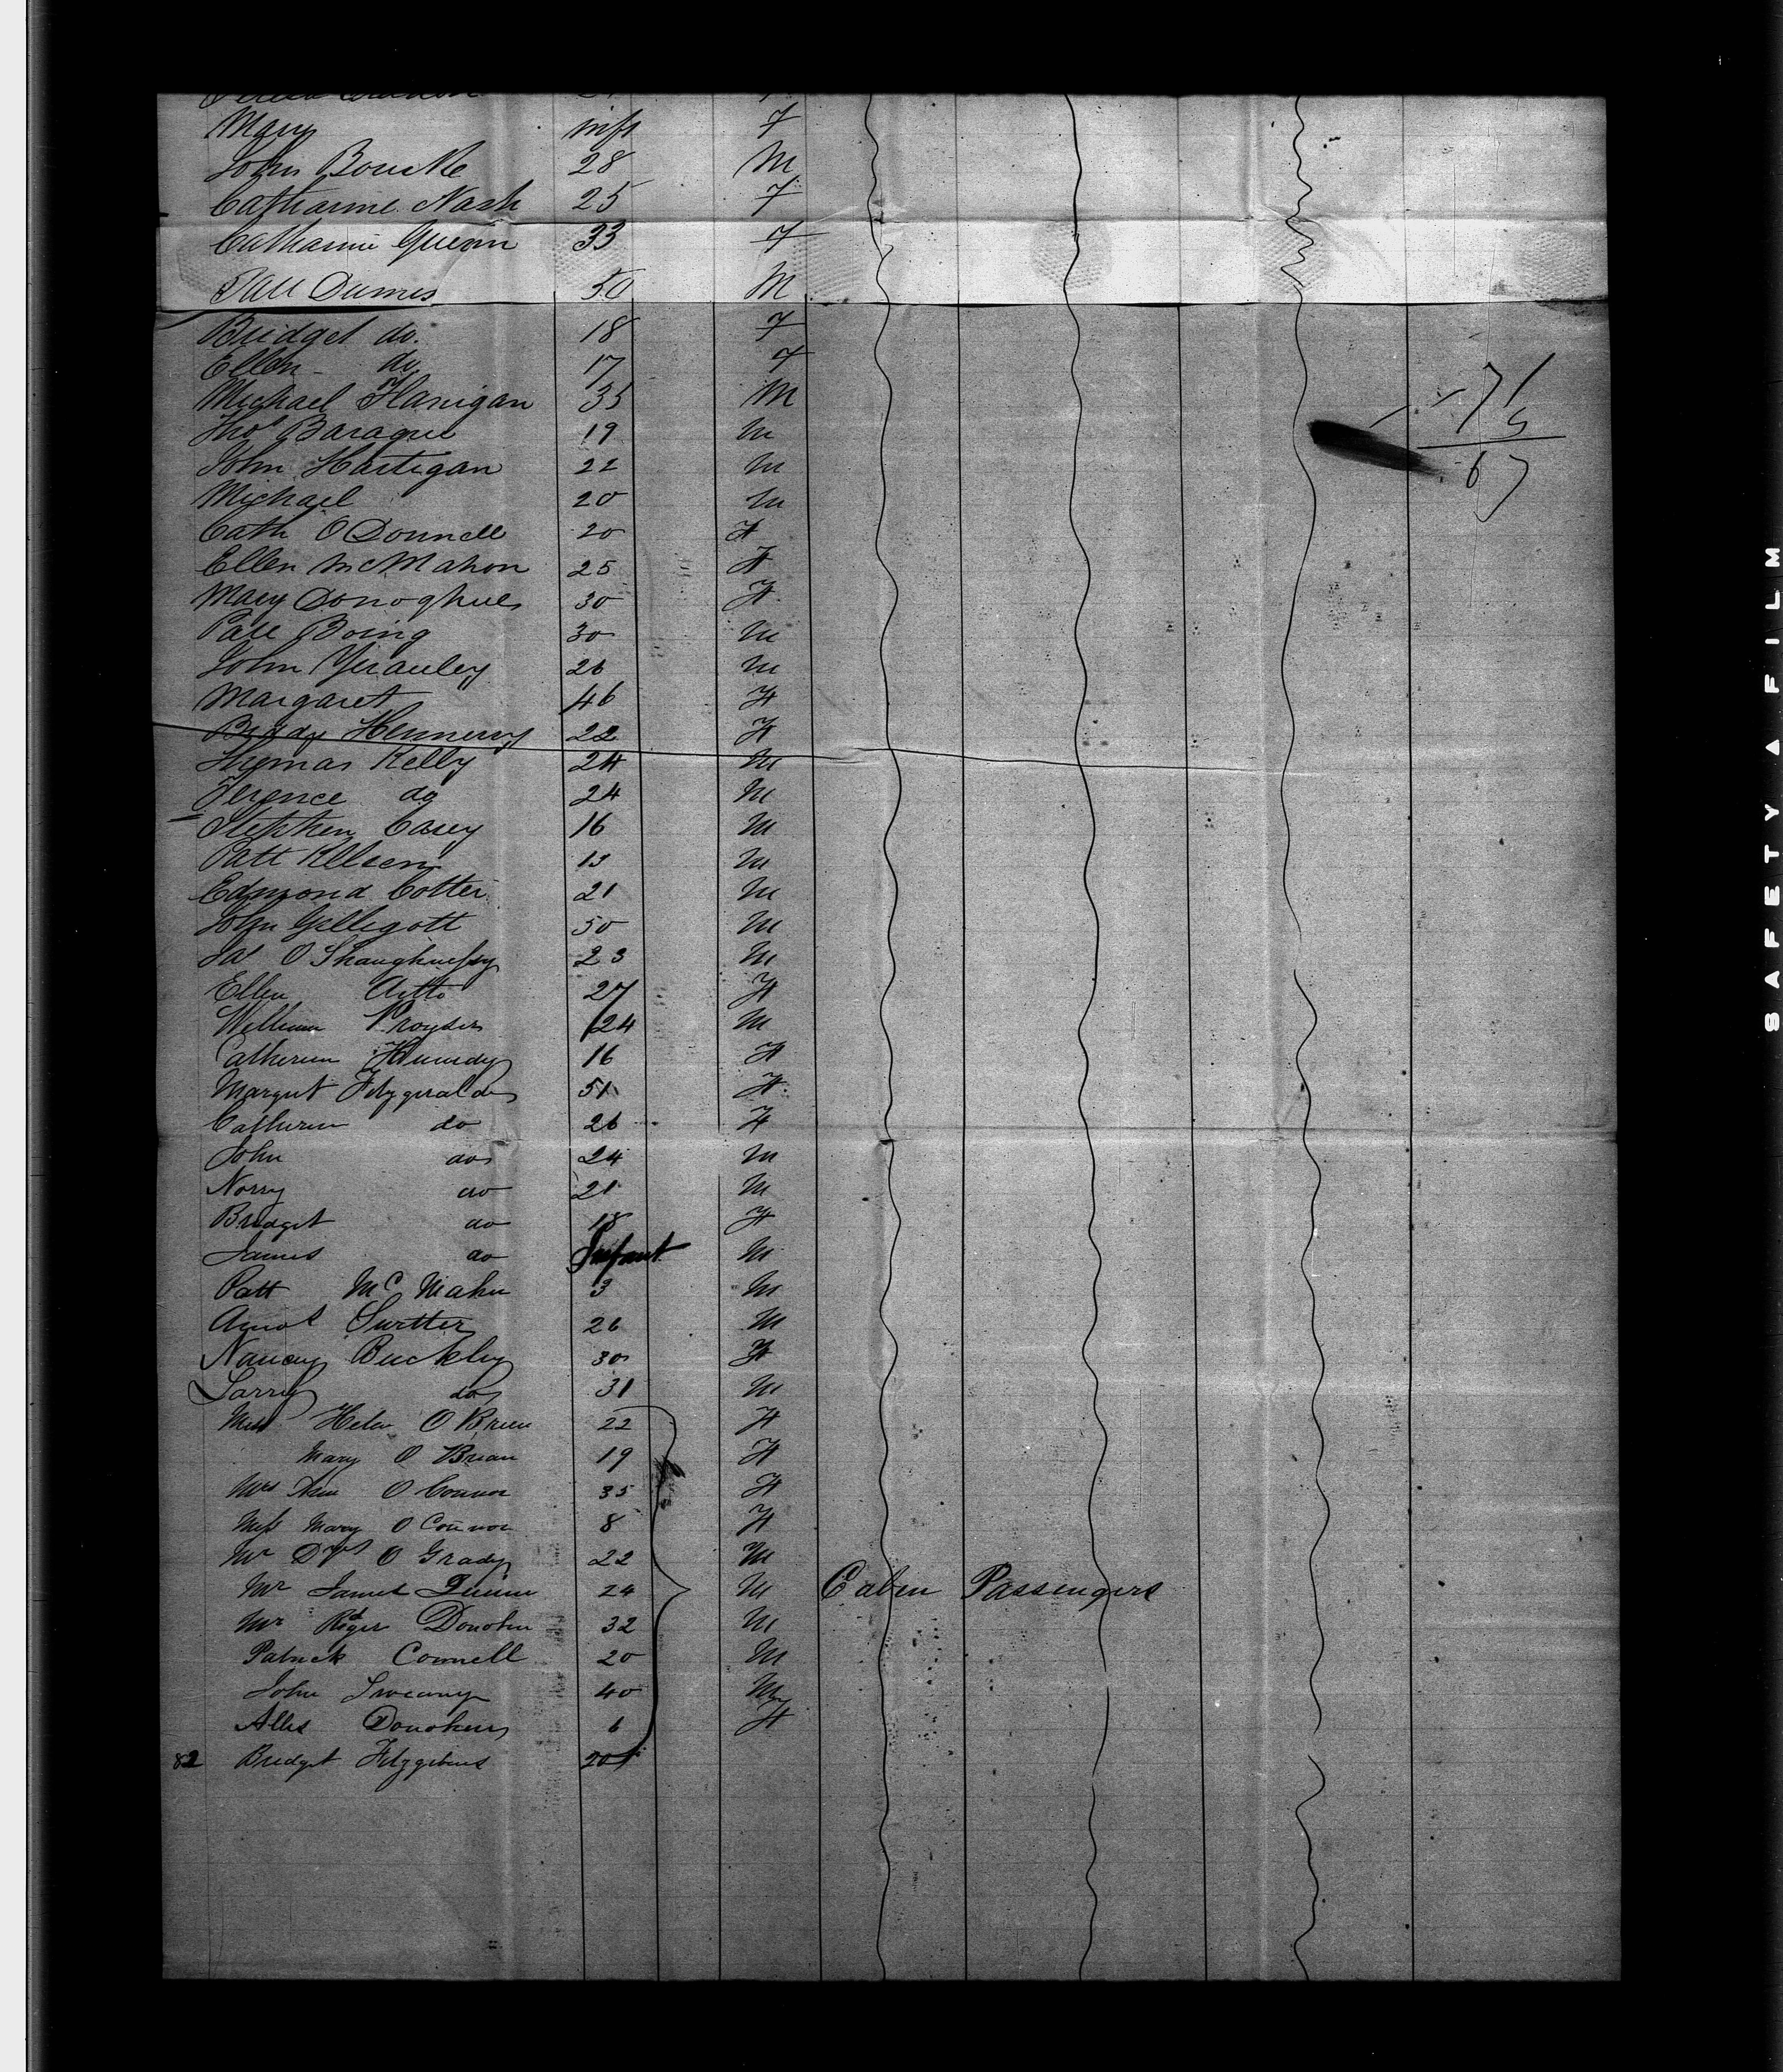 Mary inft F
John Bourke 28 M
Catharine Nash 25 F
Catharine 33 F
50 M
Bridget do. 18 F
Ellen - do 17 F
Michael Flanigan 35 M
Thos 19 M
John Hartigan 22 M
Michael 20 M
Cath O Donnell 20 F
Ellen McMahon 25 F
Mary Donoghue 30 F
Boing 30 M
John 26 M
Margaret 46 F
Biddy Hennessy 22 F
Thomas Kelly 24 M
Terence do 24 M
Stephen Casey 16 M
Patt 13 M
Edmond Cotter 21 M
John Gilligott 50 M
O Shaughnessy 23 M
Ellen ditto 27 F
William 24 M
Catherine 16 F
Margret Fitzgerald 51 F
Catherine do 26 F
John do 24 M
Norry do 21 M
Bridget do 18 F
James do Infant M
Patt Mc Mahn 3 M
26 M
Nancy Buckley 30 F
Larry do 31 M
Miss Helen O Brien 22 F
Mary O Brian 19 F
Mrs Ann O Connor 35 F
Miss Mary O Connor 8 F
Mr O Grady 22 M
Mr James Quinn 24 M Caben Passengers
Mr Roger Donohue 32 M
Patrick Connell 20 M
John Sweeny 40 M
Donohue 6 F
82 Bridget Fitzgibons 20
71
5
67
SAFETY ▲ FILM